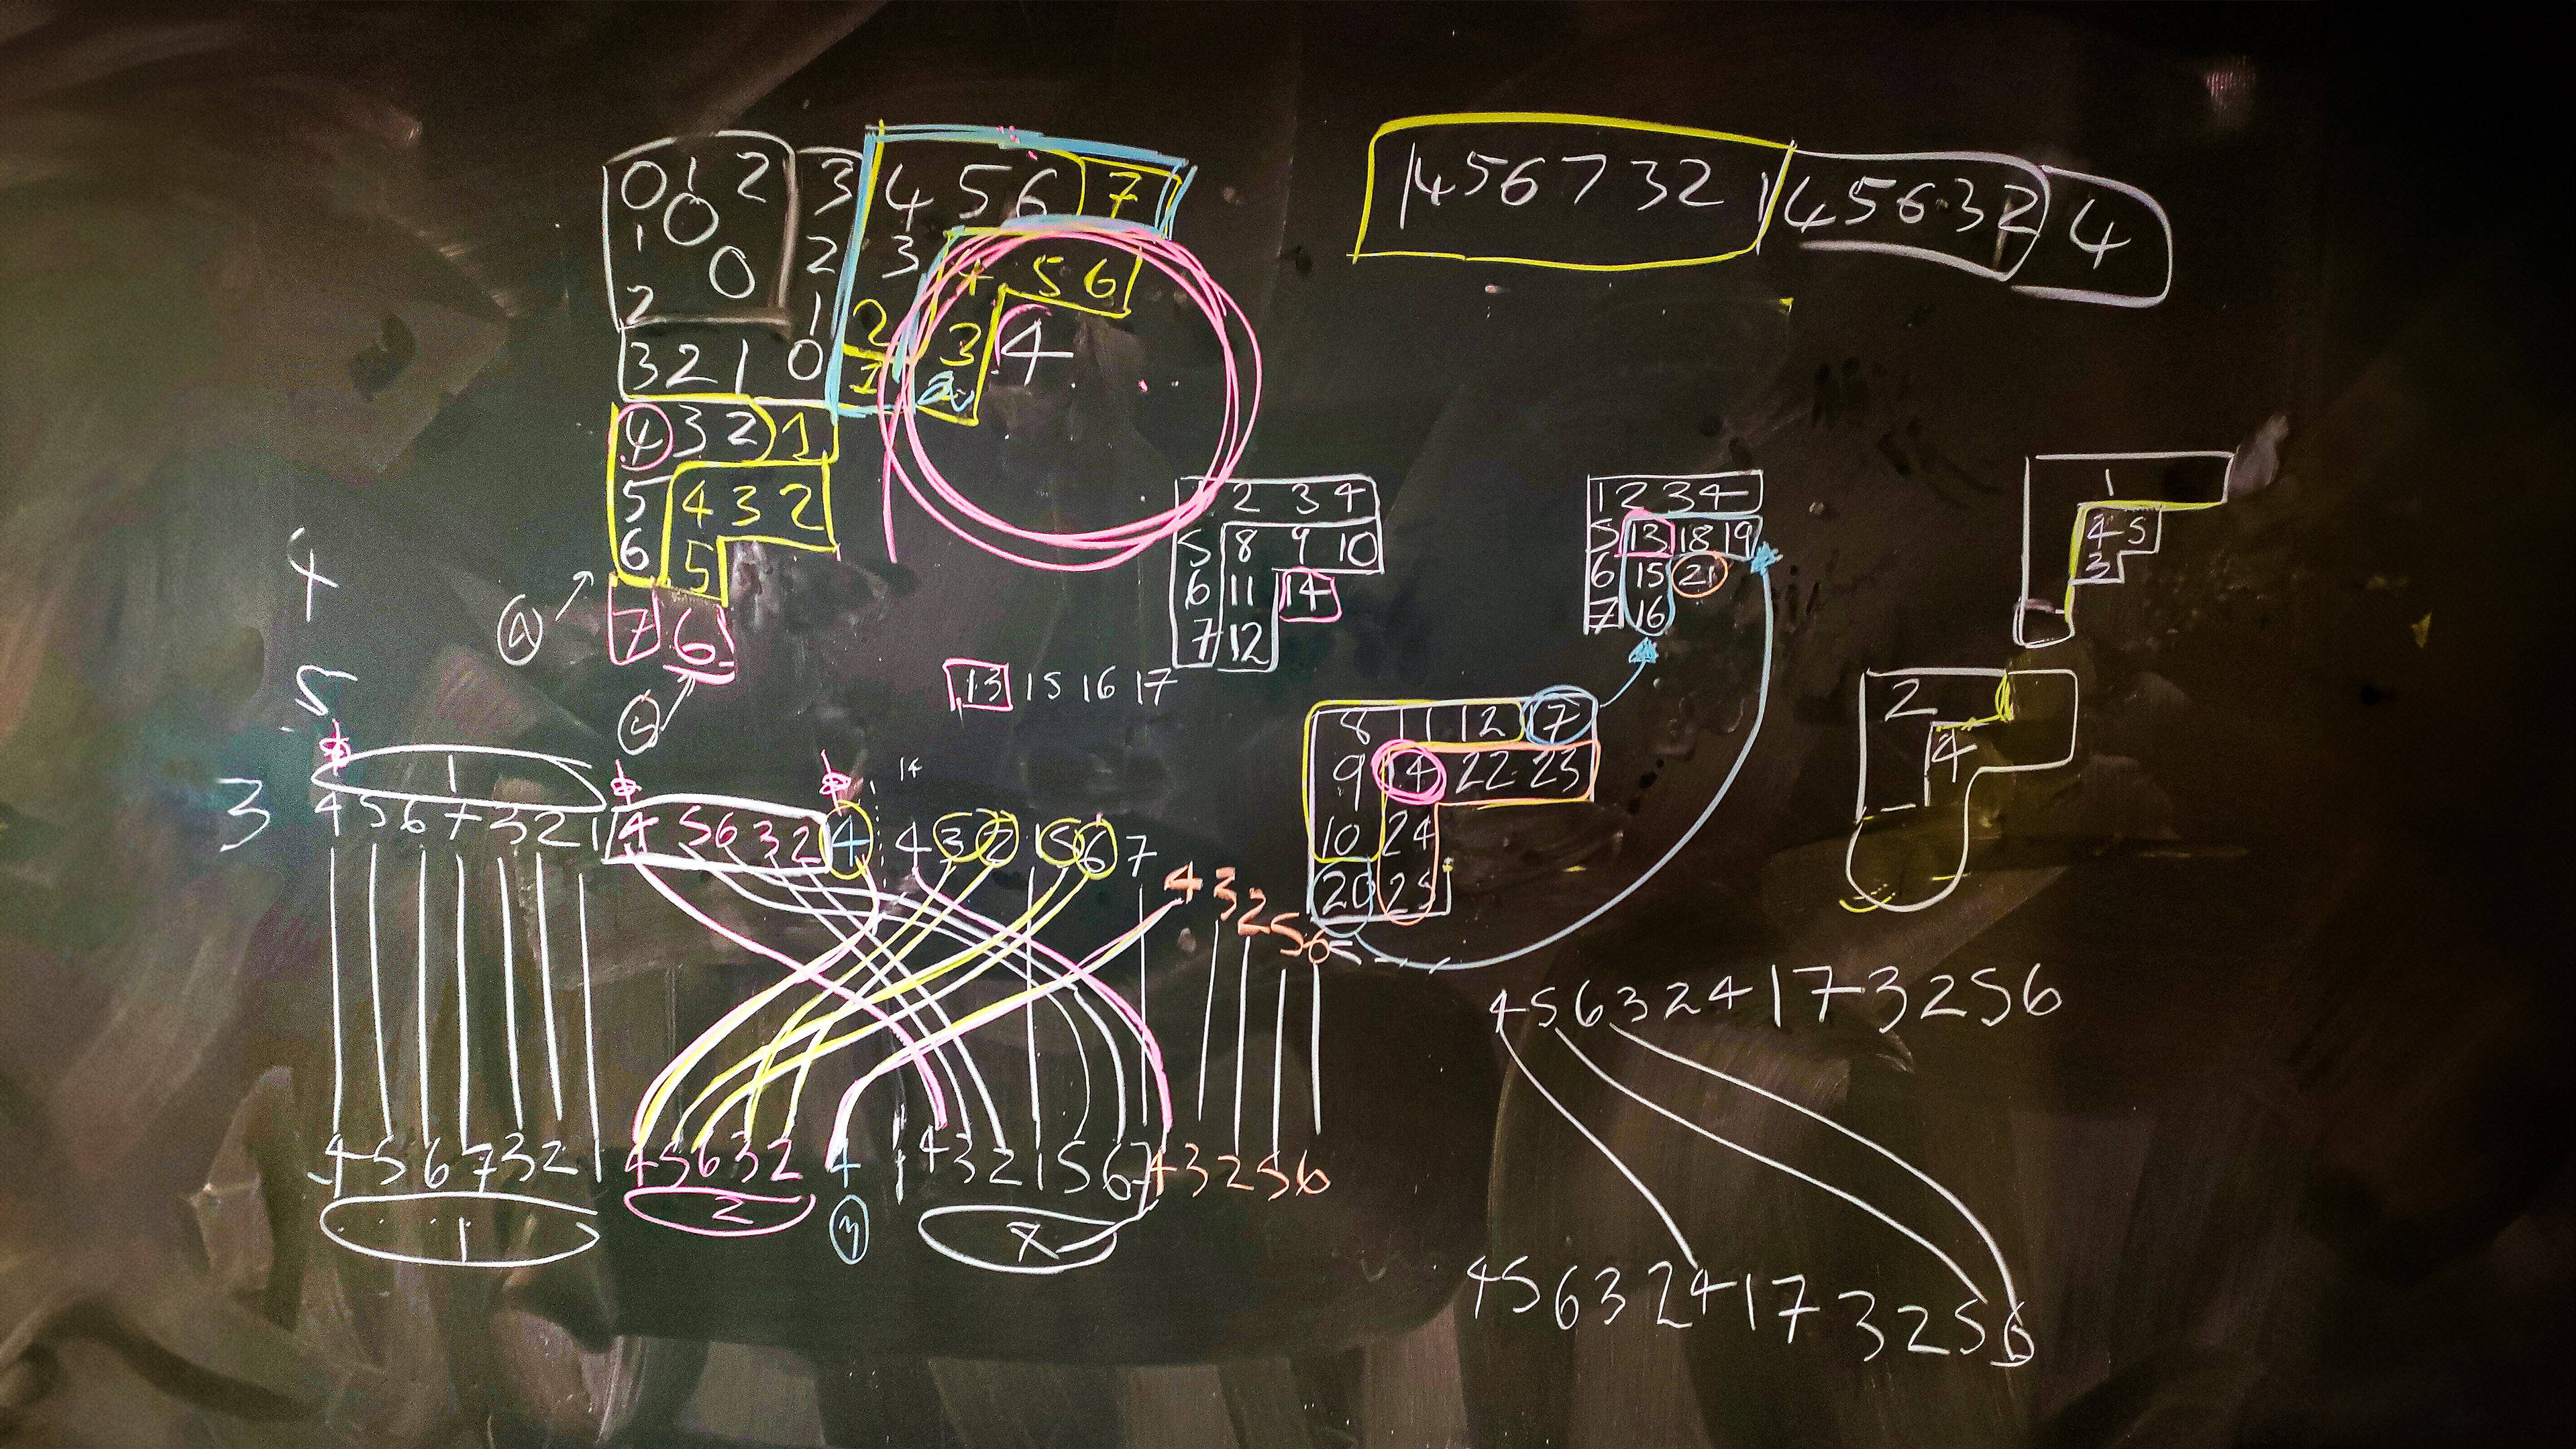 0 1 2 3 4 5 6 7
1 0 2 3 4 5 6
2 0 1 2 3 4
3 2 1 0 1 2
4 3 2 1
5 4 3 2
6 5
7 6
1 4 5 6 7 3 2 1 4 5 6 3 2 4
4
5
3
1 2 3 4
5 8 9 10
6 11 14
7 12
13 15 16 17
1 2 3 4
5 13 18 19
6 15 21
7 16
1
4 5
3
2
4
8 11 12 7
9 14 22 23
10 24
20 25
1
14
4 5 6 7 3 2 1 4 5 6 3 2 4 4 3 2 1 5 6 7
4 3 2 5 6
4 5 6 7 3 2 4 5 6 3 2 4 1 4 3 2 1 5 6 7 4 3 2 5 6
1 2 3
4 5 6 3 2 4 1 7 3 2 5 6
4 5 6 3 2 4 1 7 3 2 5 6